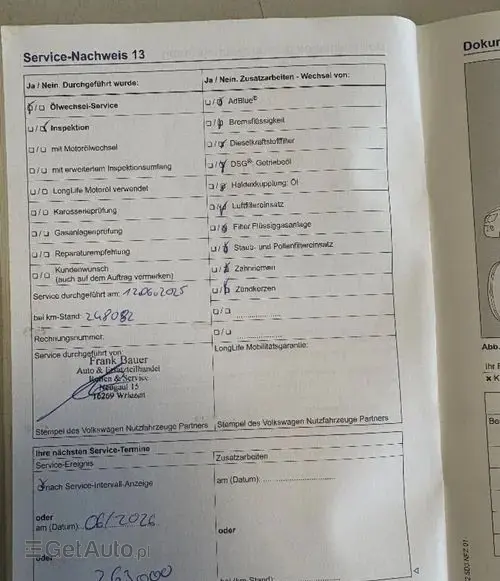 Service-Nachweis 13
Dokum
Ja / Nein. Durchgeführt wurde:
Ja / Nein. Zusatzarbeiten - Wechsel von:
Ölwechsel-Service
AdBlue®
Inspektion
Bremsflüssigkeit
mit Motorölwechsel
Dieselkraftstofffilter
mit erweitertem Inspektionsumfang
DSG®: Getriebeöl
LongLife Motoröl verwendet
Haldexkupplung: Öl
Karosserieprüfung
Luftfiltereinsatz
Gasanlagenprüfung
Filter Flüssiggasanlage
Reparaturempfehlung
Staub- und Pollenfiltereinsatz
Kundenwunsch
(auch auf dem Auftrag vermerken)
Zahnriemen
Service durchgeführt am: 12.06.2025
Zündkerzen
bei km-Stand: 248082
Rechnungsnummer:
Service durchgeführt von:
LongLife Mobilitätsgarantie:
Frank Bauer
Auto & Ersatzteilhandel
Reifen & Service
Neugaul 15
16269 Wriezen
Stempel des Volkswagen Nutzfahrzeuge Partners
Stempel des Volkswagen Nutzfahrzeuge Partners
Abb.
Ihr F
Ihre nächsten Service-Termine
Service-Ereignis
Zusatzarbeiten
nach Service-Intervall-Anzeige
am (Datum):
oder
am (Datum): 06/2026
oder
oder
263000
bei (km-Stand):
GetAuto.pl